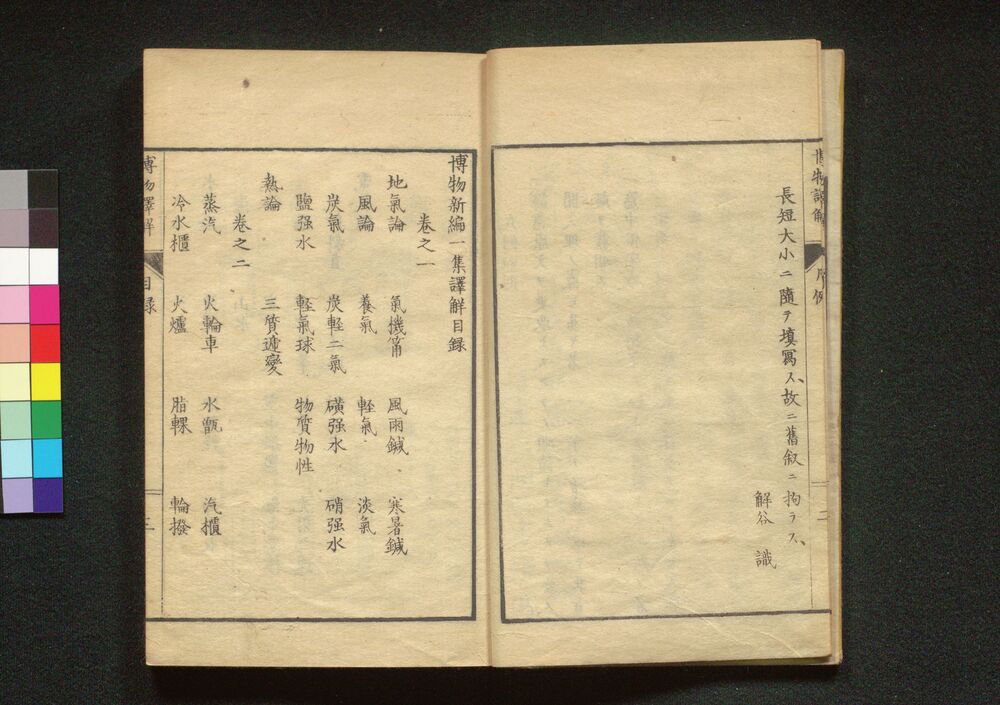 長短大小ニ隨テ填寫ス、故ニ舊叙ニ拘ラス、
解谷 識
博物新編一集譯解目録
卷之一
地氣論 氣機筩 風雨鍼 寒暑鍼
風論 養氣 軽氣 淡氣
炭氣 炭軽二氣 磺强水 硝强水
鹽强水 軽氣球 物質物性
熱論 三質遞變
卷之二
蒸汽 火輪車 水甑 汽櫃
冷水櫃 火爐 脂輠 輪撥
目録